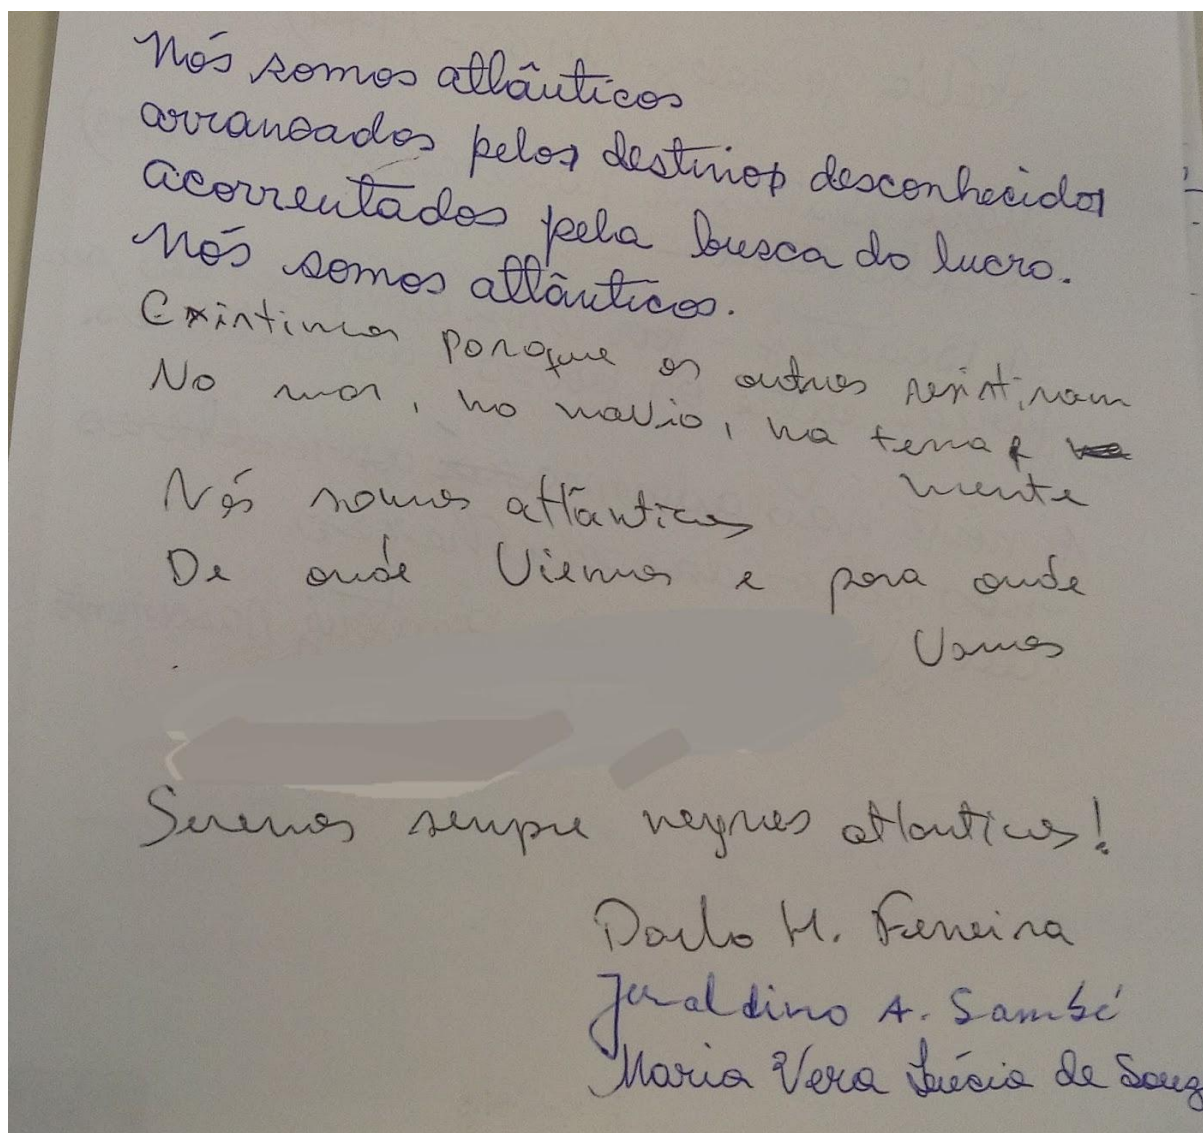 Nós somos atlânticos
arrancados pelos destinos desconhecidos
acorrentados pela busca do lucro.
Nós somos atlânticos.
Existimos porque os outros resistiram
No mar, no navio, na terra e
mente
Nós somos atlânticos
De onde Viemos e para onde
Vamos
Seremos sempre negros atlanticos!
H. Ferreira
Juraldino A. Sambé
Maria Vera Lúcia de Souz